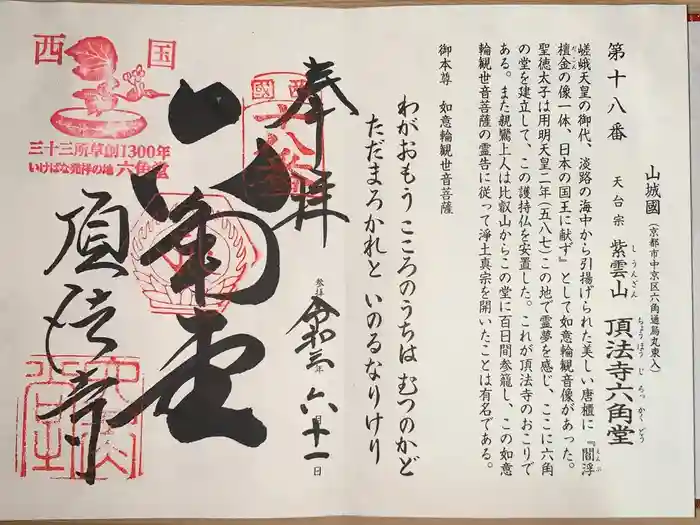 山城國(京都市中京区六角通烏丸東入)
第十八番 天台宗 紫雲山 頂法寺六角堂
しうんざん ちょうほうじ ろっかくどう
嵯峨天皇の御代、淡路の海中から引揚げられた美しい唐櫃に『閻浮
檀金の像一体、日本の国王に献ず』として如意輪観音像があった。
聖徳太子は用明天皇二年(五八七)この地で霊夢を感じ、ここに六角
の堂を建立して、この護持仏を安置した。これが頂法寺のおこりで
ある。また親鸞上人は比叡山からこの堂に百日間参籠し、この如意
輪観世音菩薩の霊告に従って淨土真宗を開いたことは有名である。
御本尊 如意輪観世音菩薩
わがおもう こころのうちは むつのかど
ただまろかれと いのるなりけり
奉拝
参拝 令和三年 六月十一日
西國
十八番
六角堂
頂法寺
西国
三十三所草創1300年
いけばな発祥の地 六角堂